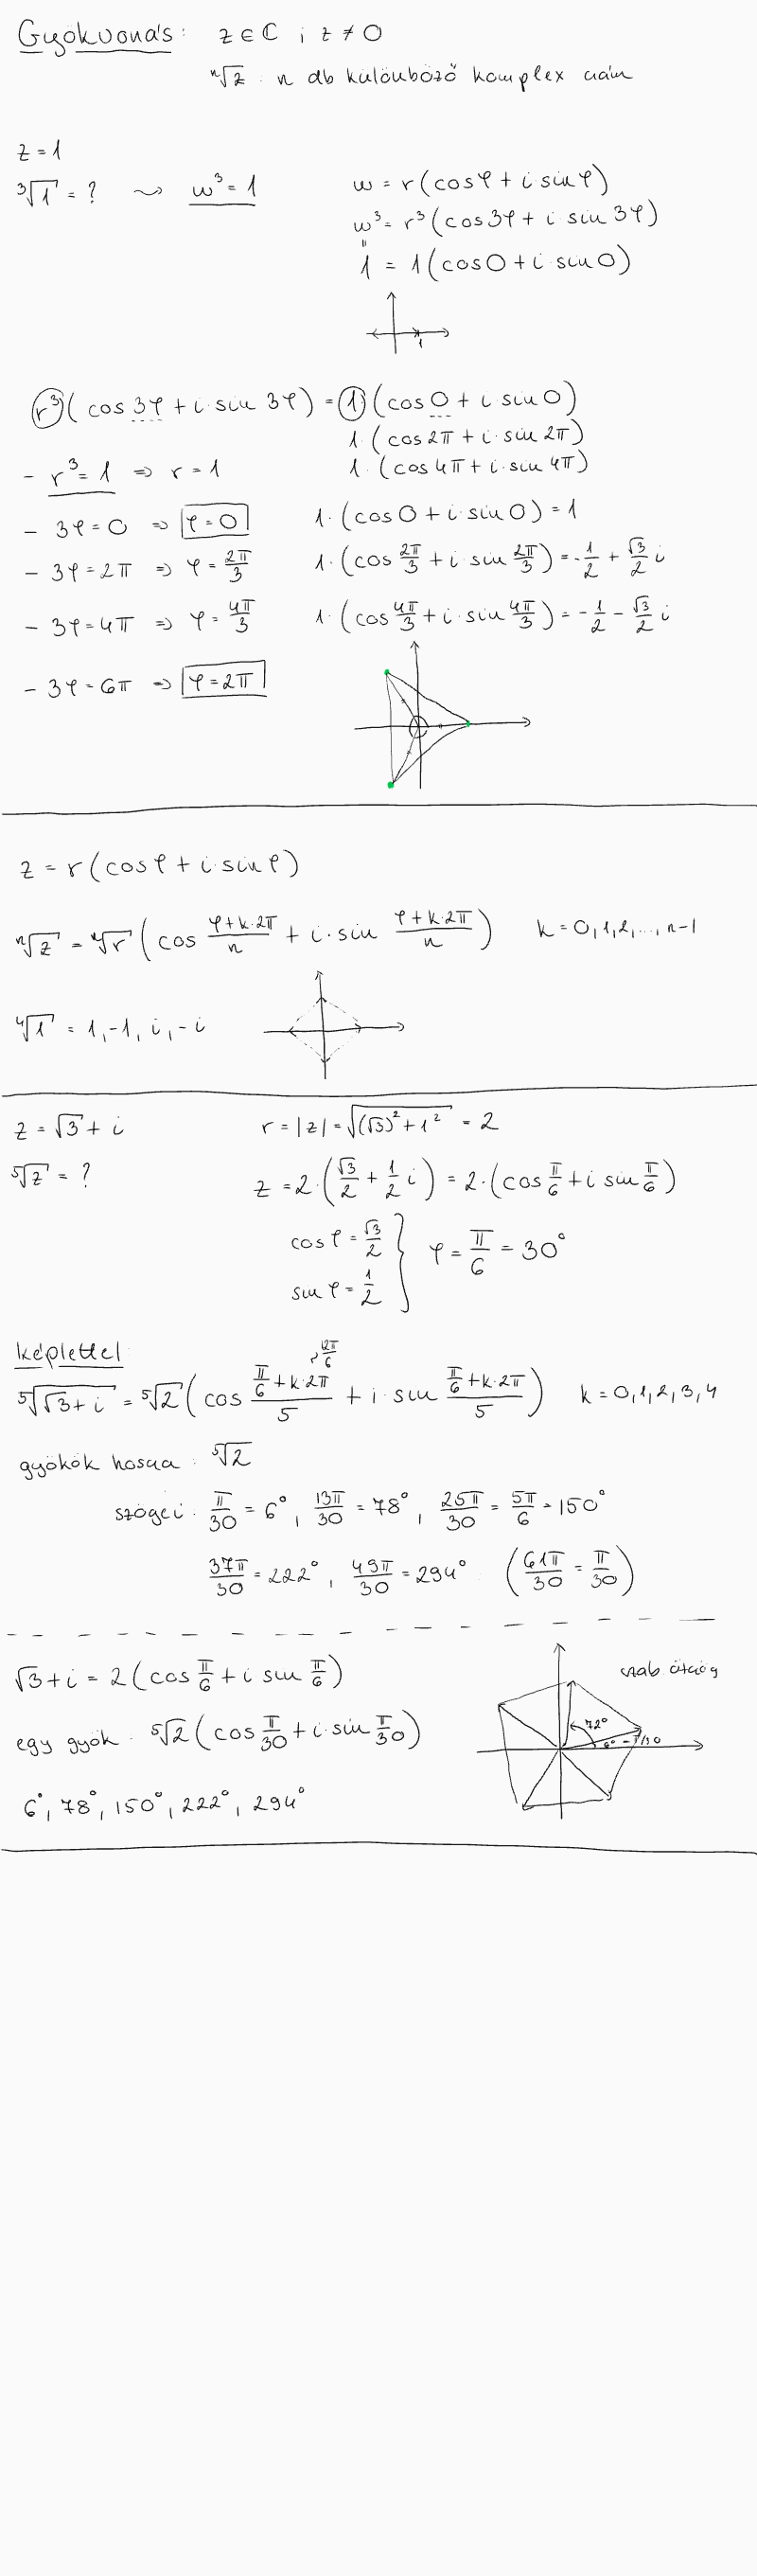 Gyökvonás: z ∈ ℂ ; z ≠ 0
ⁿ√z : n db különböző komplex szám
z = 1
³√1 = ? ⇝ w³ = 1
w = r(cosφ + i sinφ)
w³ = r³(cos3φ + i·sin 3φ)
॥
1 = 1(cos0 + i·sin0)
1
r³(cos3φ + i·sin 3φ) = 1(cos0 + i·sin0)
1·(cos2π + i·sin2π)
1·(cos4π + i·sin4π)
- r³ = 1 ⇒ r = 1
- 3φ = 0 ⇒ φ = 0 1·(cos0 + i·sin0) = 1
- 3φ = 2π ⇒ φ = 2π/3 1·(cos 2π/3 + i·sin 2π/3) = -1/2 + √3/2 i
- 3φ = 4π ⇒ φ = 4π/3 1·(cos 4π/3 + i·sin 4π/3) = -1/2 - √3/2 i
- 3φ = 6π ⇒ φ = 2π
z = r(cosφ + i·sinφ)
ⁿ√z = ⁿ√r (cos (φ+k·2π)/n + i·sin (φ+k·2π)/n) k = 0,1,2,...,n-1
⁴√1 = 1, -1, i, -i
z = √3 + i r = |z| = √((√3)² + 1²) = 2
⁵√z = ?
z = 2·(√3/2 + 1/2 i) = 2·(cos π/6 + i sin π/6)
cosφ = √3/2
sinφ = 1/2
φ = π/6 = 30°
képlettel
12π/6
⁵√(√3+i) = ⁵√2 (cos (π/6 + k·2π)/5 + i·sin (π/6 + k·2π)/5) k = 0,1,2,3,4
gyökök hossza: ⁵√2
szögei: π/30 = 6°, 13π/30 = 78°, 25π/30 = 5π/6 = 150°
37π/30 = 222°, 49π/30 = 294° (61π/30 = π/30)
√3 + i = 2(cos π/6 + i sin π/6)
szab ötszög
egy gyök: ⁵√2 (cos π/30 + i·sin π/30)
72°
6° = π/30
6°, 78°, 150°, 222°, 294°